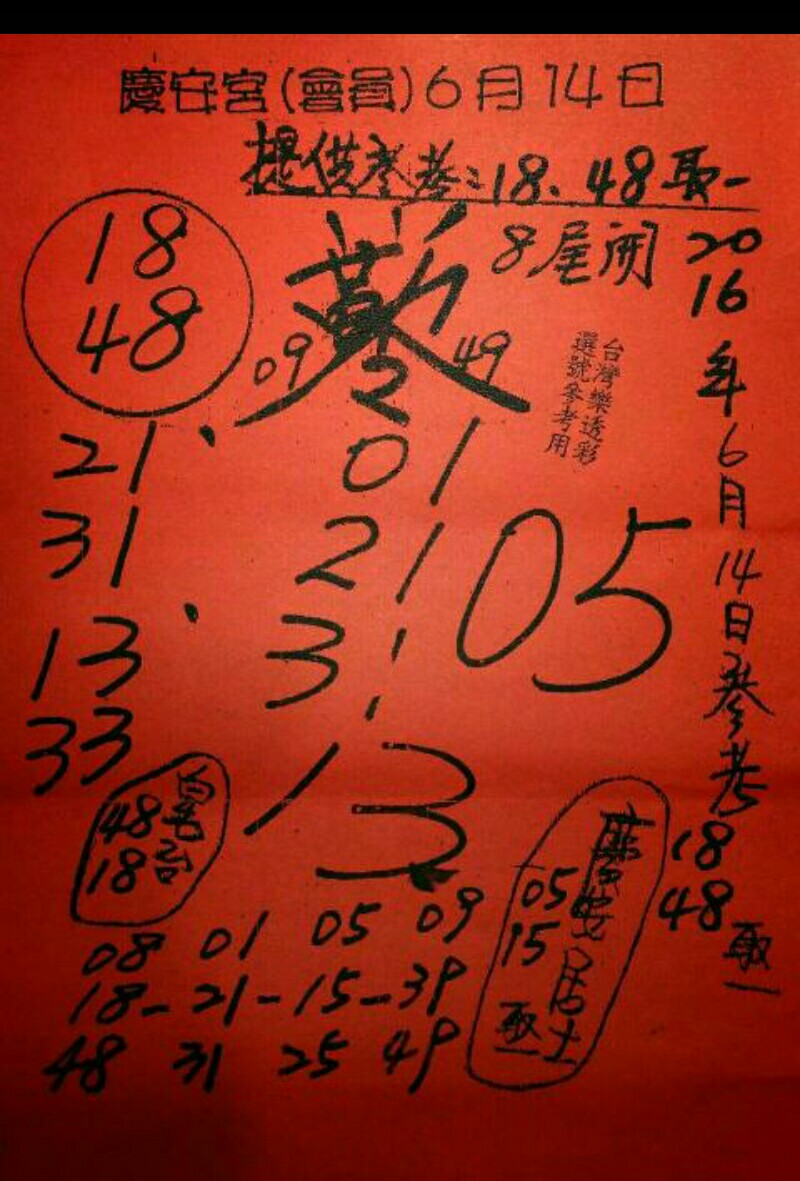 慶安宮(會員)6月14日
提供參考:18、48取一
8尾開
18
48
09
49
台灣樂透彩
選號參考用
2016年6月14日參考
18
48
取一
21、
31
13
33
01
21
31
13
05
48
18
慶安居士
05
15
取一
08 01 05 09
18-21-15-39
48 31 25 49